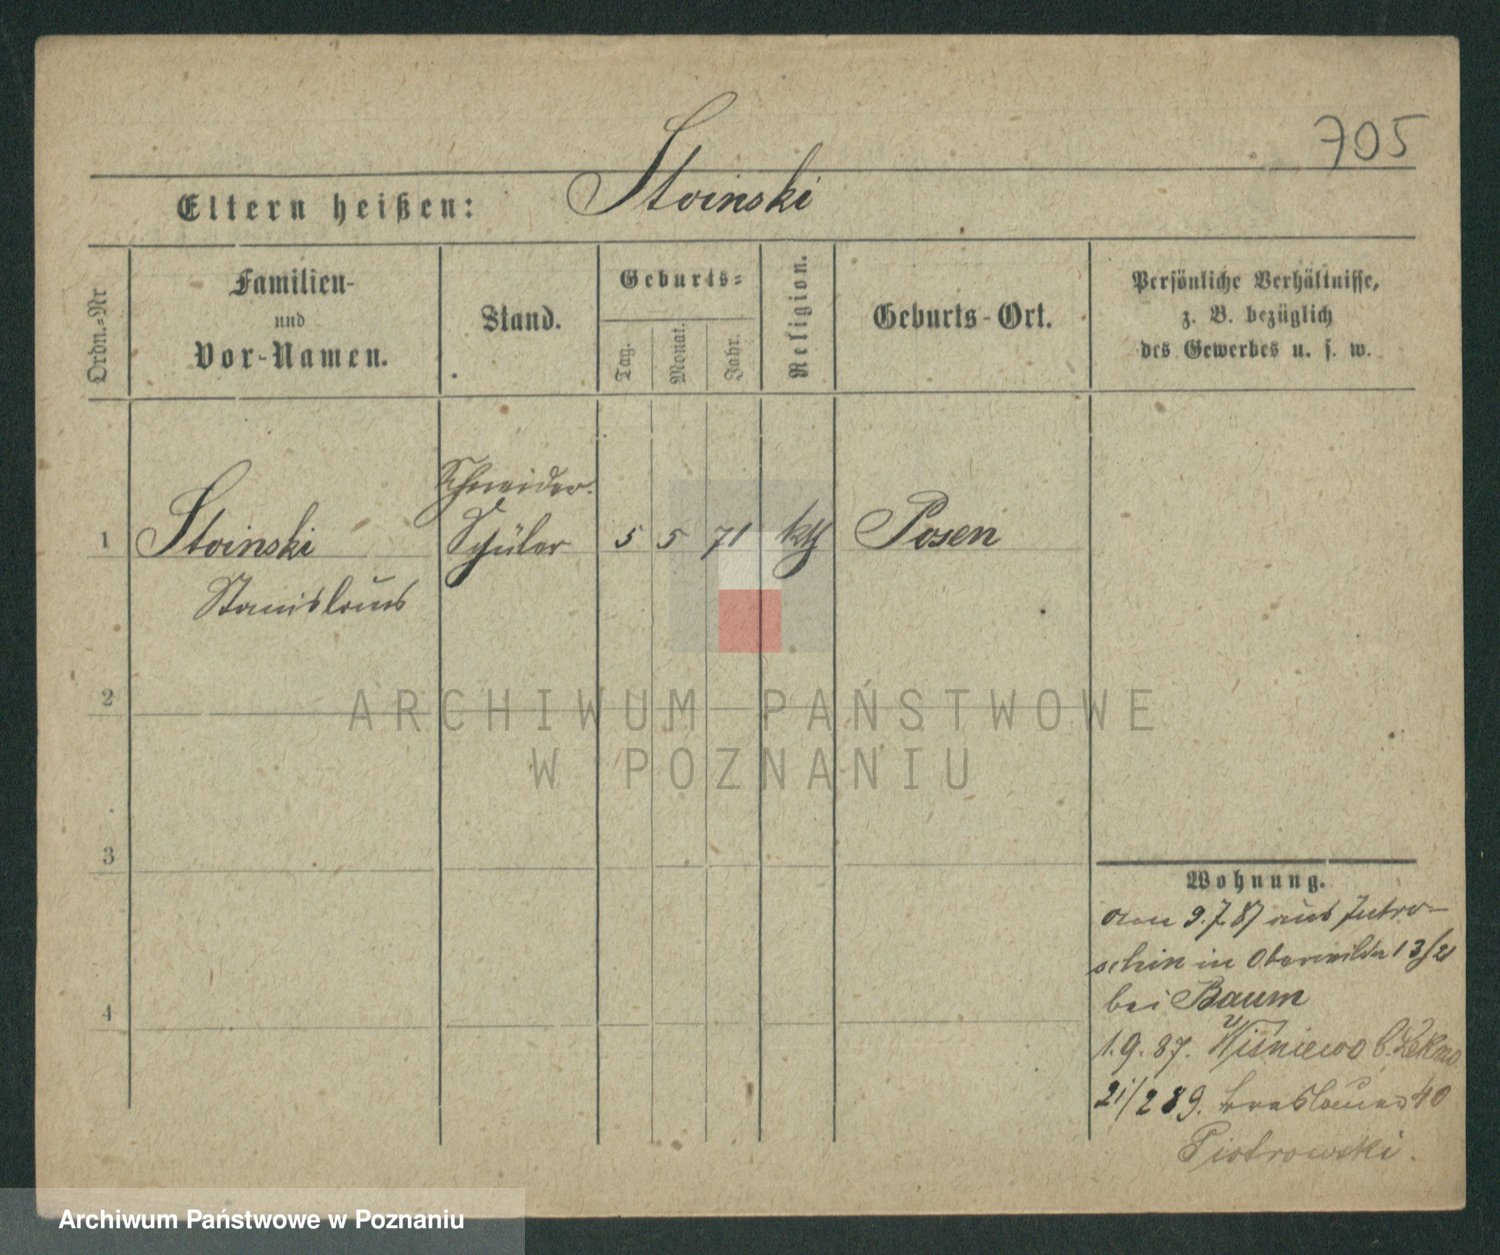 705
Eltern heißen: Stoinski
Ordn.-Nr
Familien-
und
Vor-Namen.
Stand.
Geburts-
Tag.
Monat.
Jahr.
Religion.
Geburts-Ort.
Persönliche Verhältnisse,
z. B. bezüglich
des Gewerbes u. s. w.
Schneider.
1 Stoinski Schüler 5 5 71 kth Posen
Stanislaus
2
3
4
Wohnung.
am 9.7.87 aus Jutro-
schin in Oberwilda 13/21
bei Baum
1.9.87. Wiśniewo b.
21/2 89. Breslauer 40
Piotrowski.
ARCHIWUM PAŃSTWOWE
W POZNANIU
Archiwum Państwowe w Poznaniu